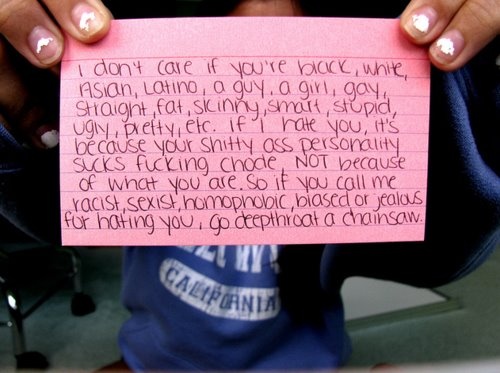 I don't care if you're black, white,
Asian, Latino, a guy, a girl, gay,
straight, fat, skinny, smart, stupid,
ugly, pretty, etc. If I hate you, it's
because your shitty ass personality
sucks fucking chode, NOT because
of what you are. So if you call me
racist, sexist, homophobic, biased or jealous
for hating you, go deepthroat a chainsaw.
CALIFORNIA